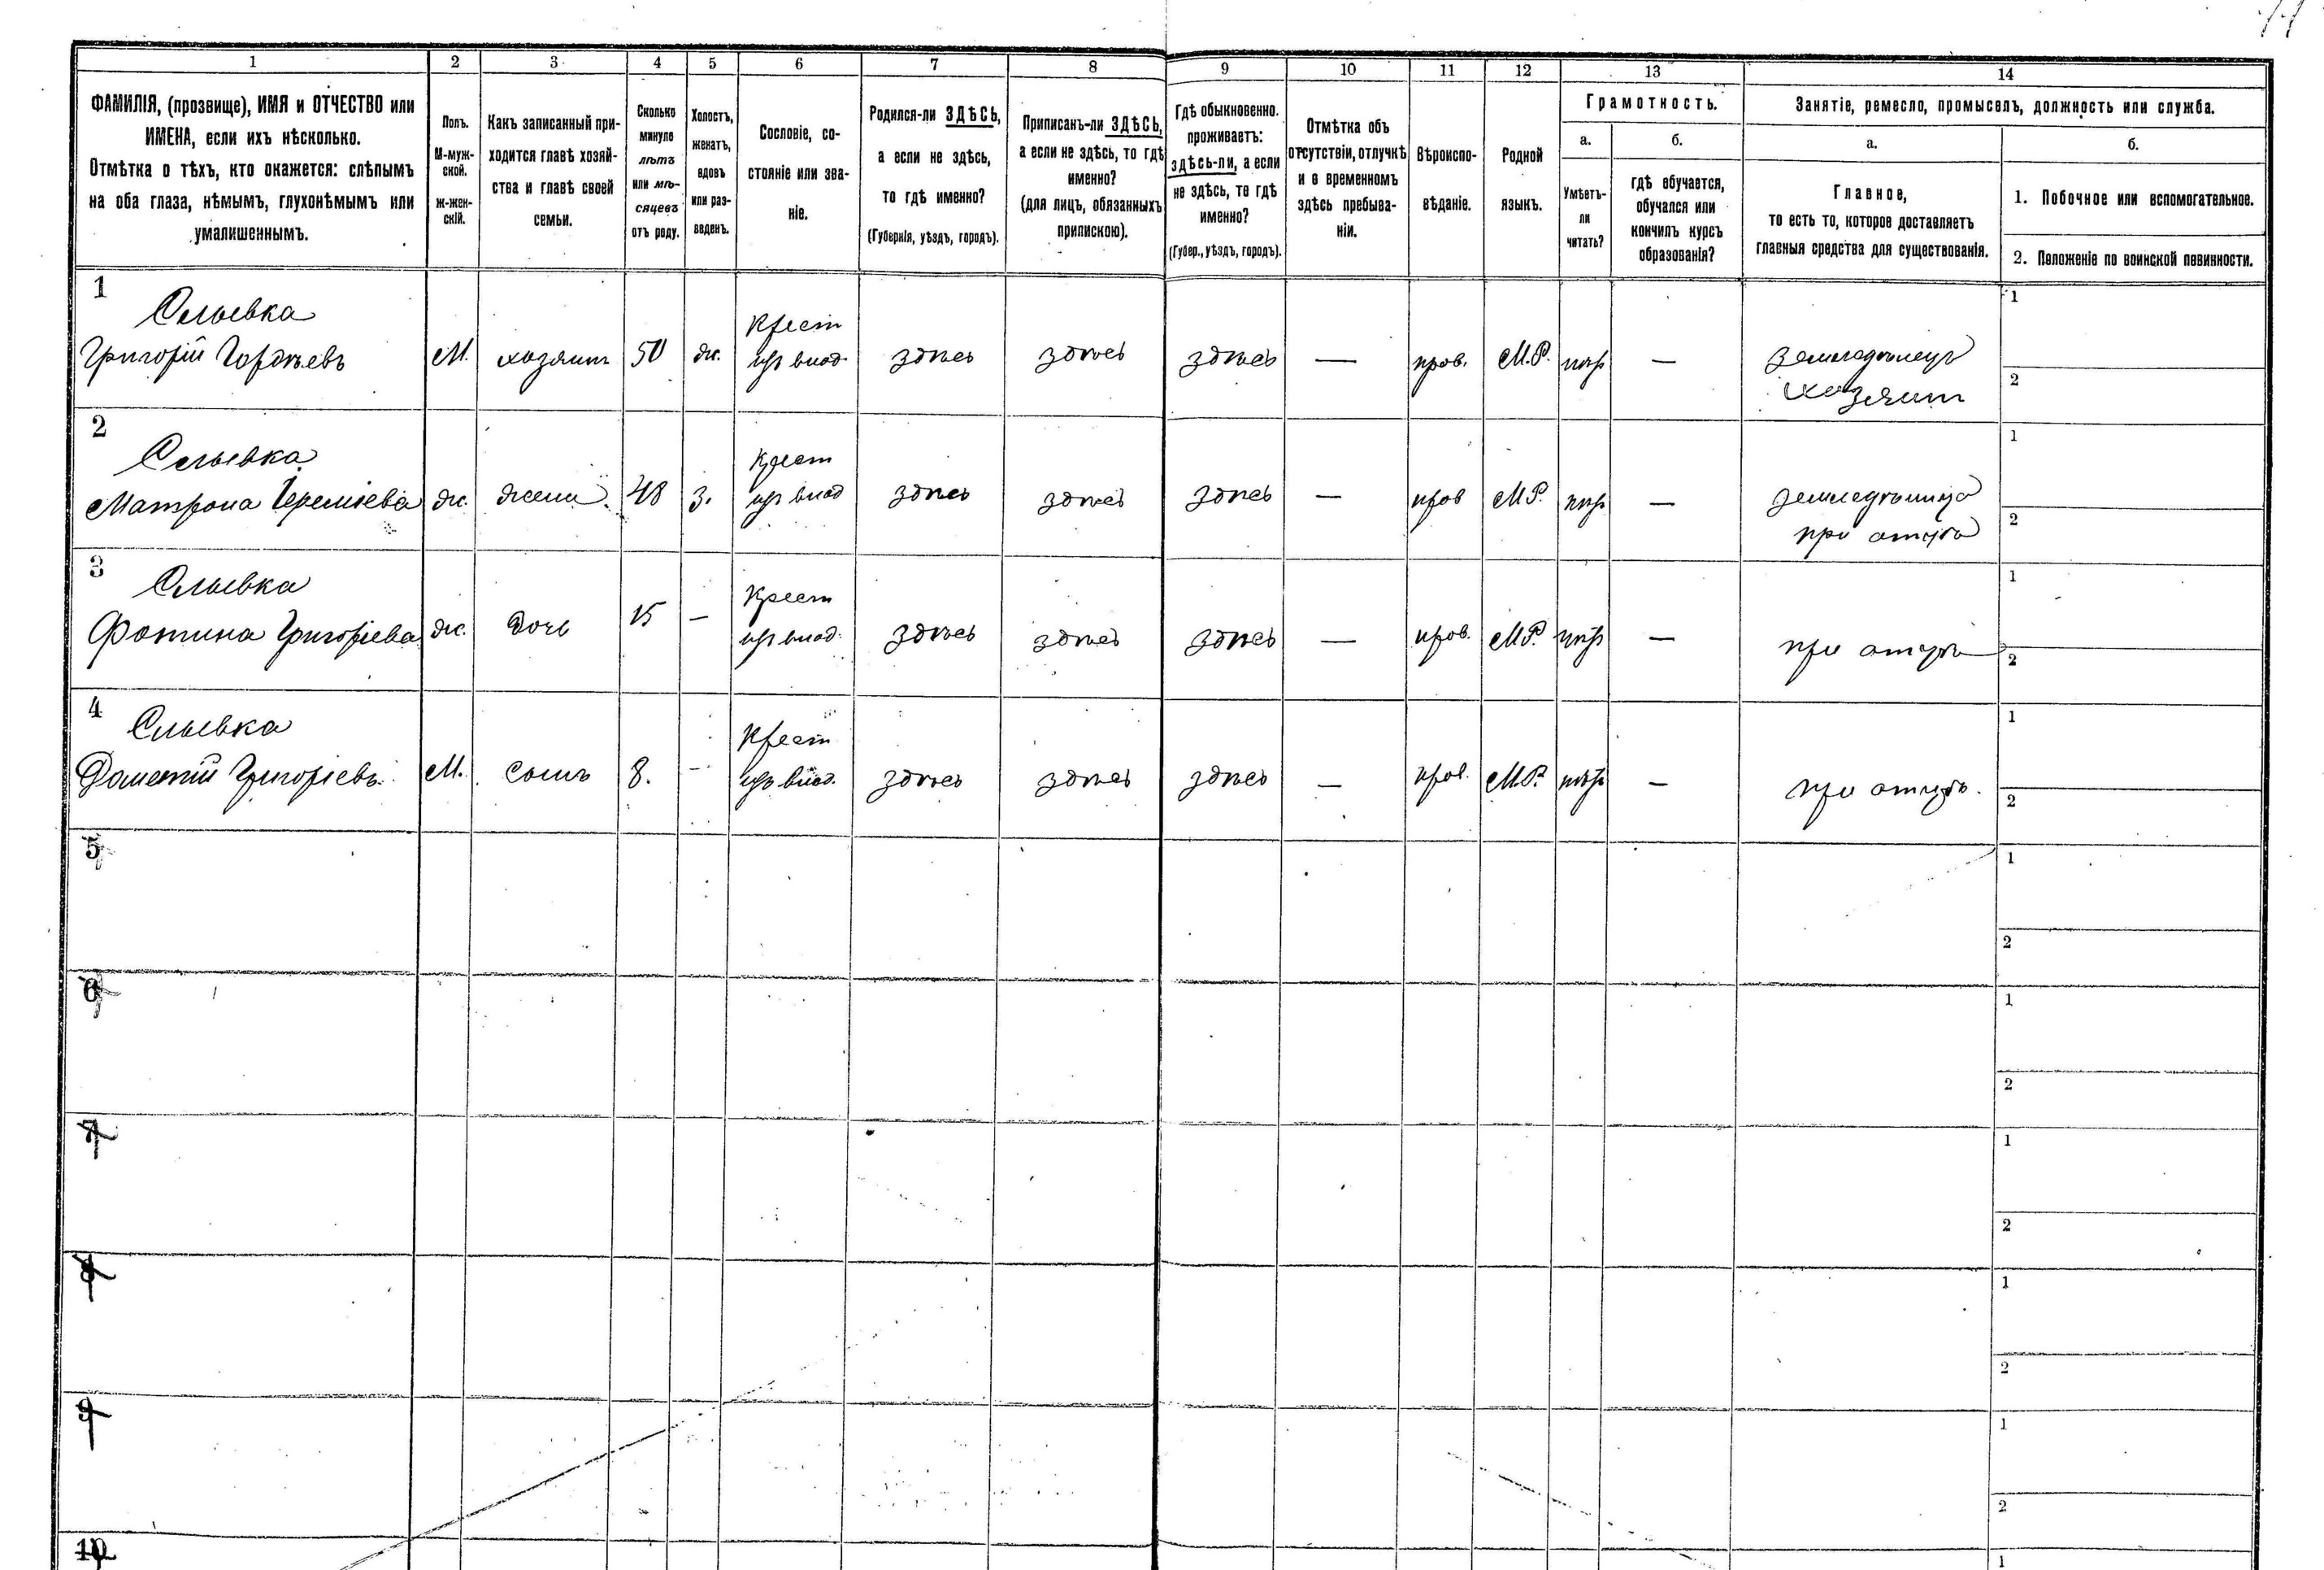 1 2 3 4 5 6 7 8 9 10 11 12 13 14
ФАМИЛІЯ, (прозвище), ИМЯ и ОТЧЕСТВО или
ИМЕНА, если ихъ нѣсколько.
Отмѣтка о тѣхъ, кто окажется: слѣпымъ
на оба глаза, нѣмымъ, глухонѣмымъ или
умалишеннымъ.
Полъ.
М-муж-
ской.
ж-жен-
скій.
Какъ записанный при-
ходится главѣ хозяй-
ства и главѣ своей
семьи.
Сколько
минуло
лѣтъ
или мѣ-
сяцевъ
отъ роду.
Холостъ,
женатъ,
вдовъ
или раз-
веденъ.
Сословіе, со-
стояніе или зва-
ніе.
Родился-ли ЗДѢСЬ,
а если не здѣсь,
то гдѣ именно?
(Губернія, уѣздъ, городъ).
Приписанъ-ли ЗДѢСЬ,
а если не здѣсь, то гдѣ
именно?
(для лицъ, обязанныхъ
припискою).
Гдѣ обыкновенно.
проживаетъ:
здѣсь-ли, а если
не здѣсь, то гдѣ
именно?
(Губер., уѣздъ, городъ).
Отмѣтка объ
отсутствіи, отлучкѣ
и о временномъ
здѣсь пребыва-
ніи.
Вѣроиспо-
вѣданіе.
Родной
языкъ.
Грамотность.
а.
Умѣетъ-
ли
читать?
б.
гдѣ обучается,
обучался или
кончилъ курсъ
образованія?
Занятіе, ремесло, промыселъ, должность или служба.
а.
Главное,
то есть то, которое доставляетъ
главныя средства для существованія.
б.
1. Побочное или вспомогательное.
2. Положеніе по воинской повинности.
1
Григорій Гордѣевъ М. хозяинъ 50 ж. Крест здѣсь здѣсь здѣсь — пров. М.Р. — земледѣлецъ
хозяинъ
1
2
2
Матрона Іереміева ж. жена 48 з. Крест здѣсь здѣсь здѣсь — пров М.Р. —
при
1
2
3
Фотина Григоріева ж. дочь 15 — Крест здѣсь здѣсь здѣсь — пров. М.Р. — при
1
2
4
Дометій Григоріевъ М. сынъ 8. — Крест здѣсь здѣсь здѣсь — пров. М.Р. — при
1
2
5
1
2
6
1
2
7
1
2
8
1
2
9
1
2
10
1